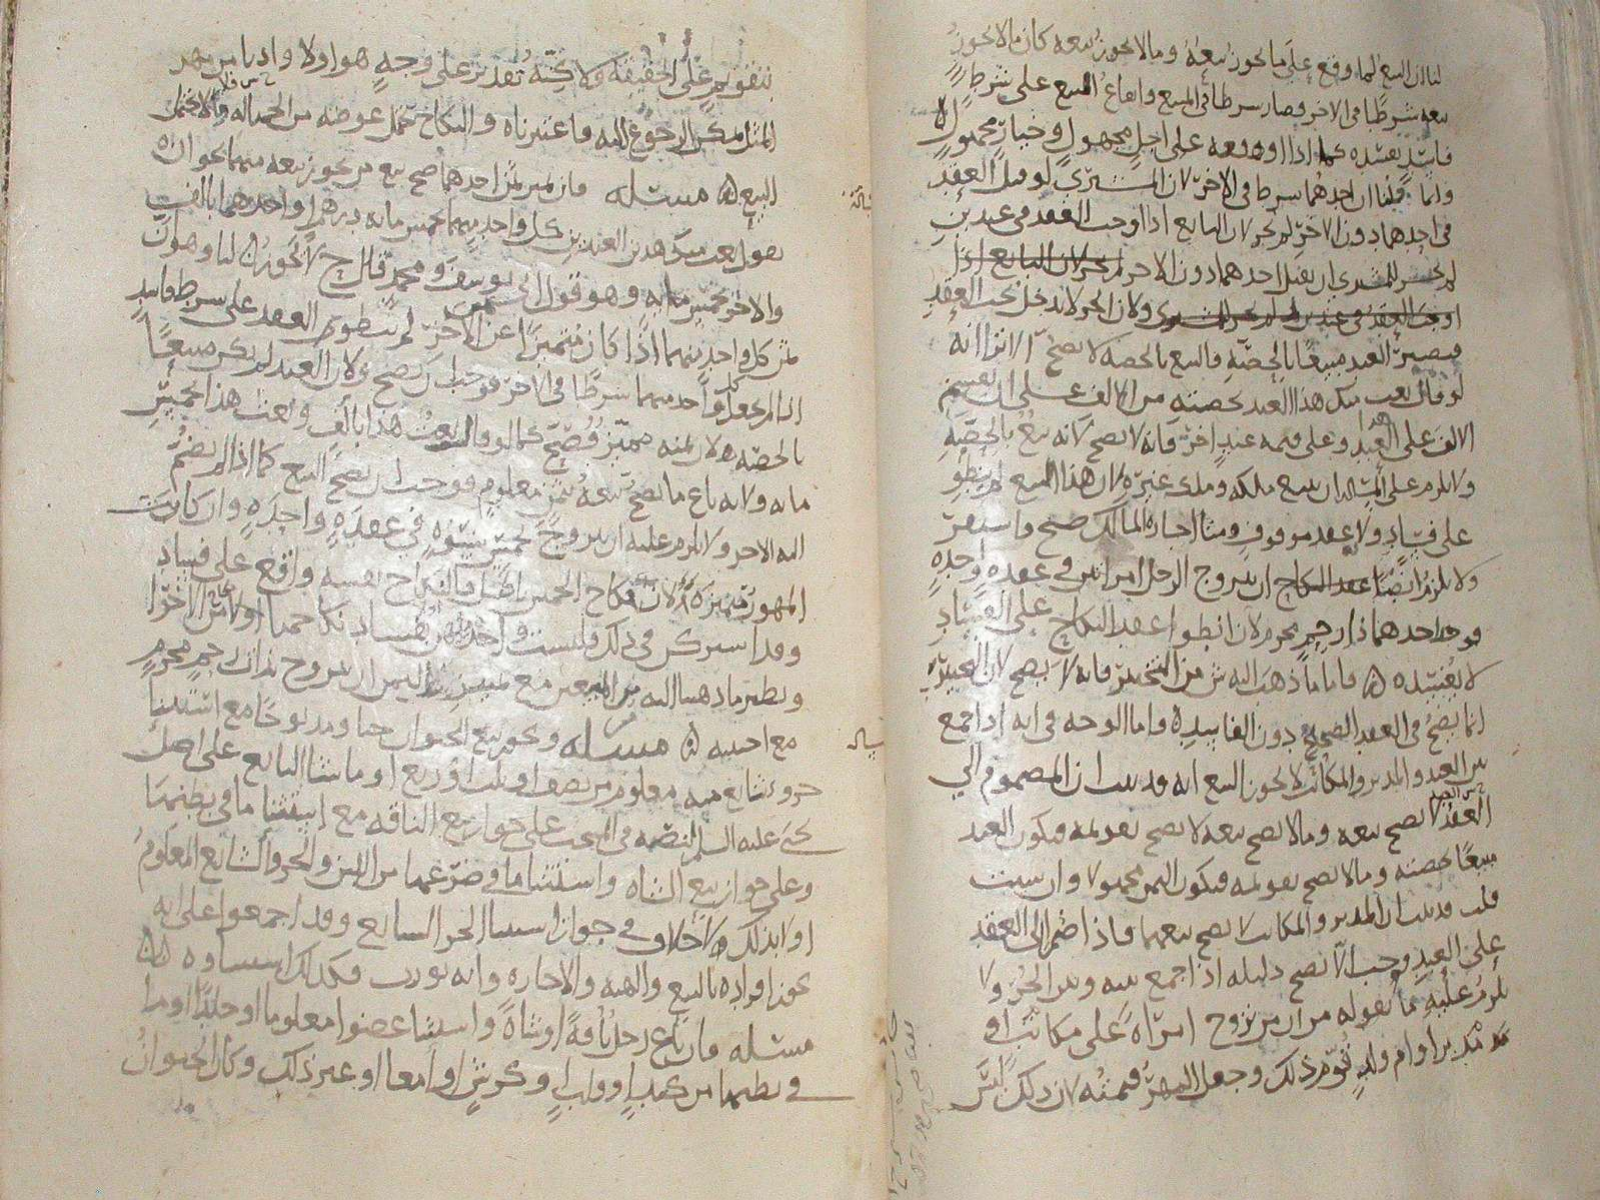 لنا ان البيع لما وقع على ما يجوز بيعه وما لا يجوز بيعه كان ما لا يجوز
بيعه شرطا في الاخر فصار شرطا في المبيع وايقاع البيع على شرط
فاسد يفسده كما اذا اوقعه على اجل مجهول وخيار مجهول
وانما قلنا ان احدهما شرط في الاخر لان المشتري لو قبل العقد
في احدهما دون الاخر لم يجز لان البايع اذا اوجب العقد في عبدين
لم يكن للمشتري ان يقبل احدهما دون الاخر
ولان الحر لا يدخل تحت العقد
فيصير العبد مبيعا بالحصة والبيع بالحصة لا يصح الا ترا انه
لو قال بعت منك هذا العبد بحصته من الالف على ان يقسم
الالف على هذا العبد وعلى قيمة عبد اخر فانه لا يصح لانه بيع بالحصة
ولا يلزم على ان بيع ملكه وملك غيره لان هذا البيع لم ينطو
على فساد ولا عقد موقوف ومتا اجازه المالك صح واستقر
ولا يلزم ايضا ان يتزوج الرجل امراتين في عقدة واحدة
فوجد احدهما ذا رحم محرم لان انطوا عقد النكاح على الفساد
لا يفسده فاما ما ذهب اليه ش من التخيير فانه لا يصح لان التخيير
انما يصح في العقد الصحيح دون الفاسدة واما الوجه في انه اذا جمع
بين العبد والمدبر والمكاتب لا يجوز البيع انه قد ثبت ان المضموم الي
العبد في العقد لا يصح بيعه وما لا يصح بيعه لا يصح تقويمه فيكون العبد
مبيعا بحصته وما لا يصح تقويمه فيكون الثمن مجهولا وان شئت
قلت قد ثبت ان المدبر والمكاتب لا يصح بيعهما فاذا ضم الى العقد
على العبد وجب الا يصح دليله اذا جمع بينه وبين الحر ولا
يلزم عليه ما نقوله من ان من تزوج امراة على مكاتب او
مدبر او ام ولد قوم ذلك وجعل المهر قيمته لان ذلك ليس
بتقويم على الحقيقة ولكنه تقدير على وجه هو اولا وادنا من مهر
المثل امكن الرجوع اليه فاعتبرناه والنكاح تحمل عوضه من الجهالة ما لا يحتمل
البيع مسئله فان تميز ثمن احدهما صح بيع من يجوز بيعه منهما نحو ان
يقول بعت منك هذين العبدين كل واحد منهما بخمس مايه درهم او احدهما بالف
والاخر بخمس مايه وهو قول ابي يوسف ومحمد قال ح لا يجوز لنا وهو ان
ثمن كل واحد منهما اذا كان متميزا عن الاخر لم ينطوي العقد على شرط فاسد
اذا لم يجعل كل واحد منهما شرطا في الاخر فوجب ان يصح ولان العبد لم يكن مبيعا
بالحصة لان ثمنه متميز فصح كما لو قال بعت هذا بالف وبعت هذا بخمس
مايه ولانه باع ما يصح بيعه بثمن معلوم فوجب ان يصح البيع كما اذا لم يضم
اليه الاخر ولا يلزم عليه ان يتزوج خمس نسوة في عقدة واحدة وان كانت
المهور متميزة لان نكاح الخمس اصل والنكاح نفسه واقع على فساد
وقد اشتركن في ذلك فليست واحدة منهن بفساد نكاحها اولا من الاخرا
ونظير ما ذهبنا اليه من المبيعين مع تمييز الثمن ان يتزوج بذات رحم محرم
مع اجنبيه مسئله ويجوز بيع الحيوان حيا ومذبوحا مع استثنا
جزو شايع منه معلوم من نصف او ثلث او ربع او ما شا البايع على اصل
يحيى عليه السلم لنصه في المنتخب على جواز بيع الناقة مع استثنا ما في بطنها
وعلى جواز بيع الشاه واستثنا ما في ضرعها من اللبن والجزو الشايع المعلوم
اولا بذلك ولا خلاف في جواز استثنا الجز الشايع وقد اجمعوا على انه
يجوز افراده بالبيع والهبه والاجاره وانه يورث فكذلك استثناوه
مسئله فان باع رجل ناقة او شاة واستثنا عضوا معلوما او جلدا او ما
في بطنها من كبد او قلب وكرش او امعا او غير ذلك وكان الحيوان